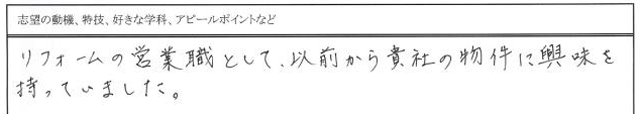 志望の動機、特技、好きな学科、アピールポイントなど
リフォームの営業職として、以前から貴社の物件に興味を
持っていました。